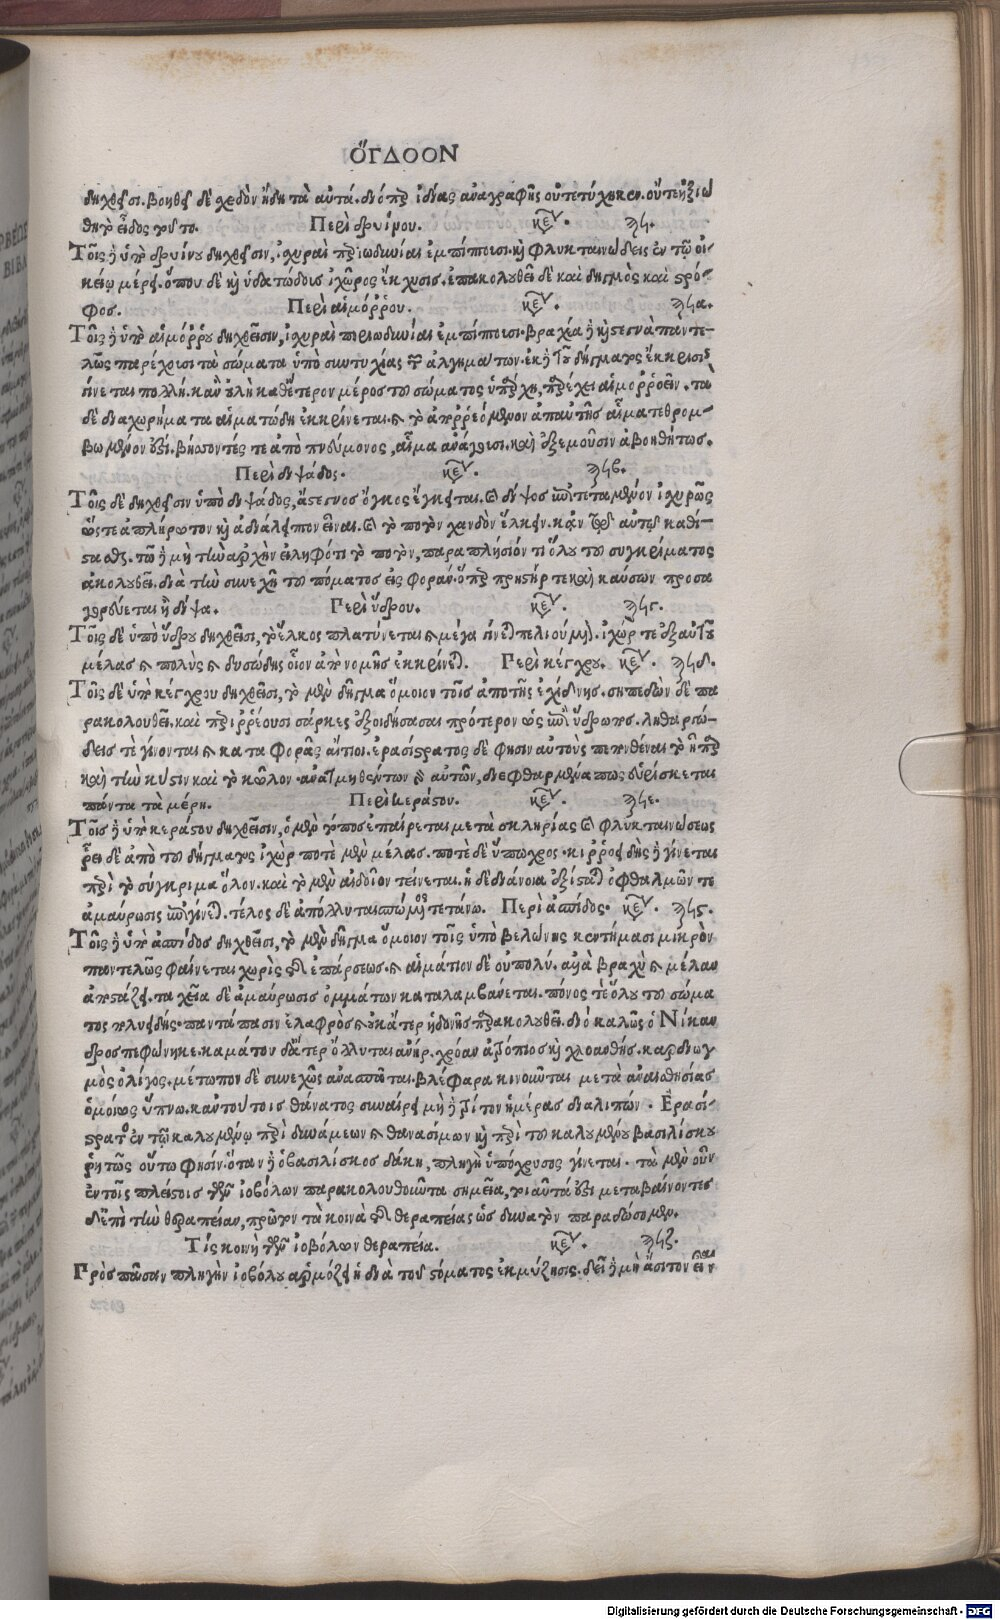 ὌΓΔΟΟΝ
δηχθεῖσι. βοηθεῖ δὲ σχεδὸν ἤδη τὰ αὐτά. διόπερ ἰδίας ἀναγραφῆς οὐ τετύχηκεν. οὔτε ἠξιώ
θη τὸ εἶδος τοῦτο. Περὶ δρυίνου. κεφ. ϟ.
Τοῖς δὲ ὑπὸ δρυίνου δηχθεῖσιν, ἰσχυραὶ περιωδυνίαι ἐμπίπτουσι. καὶ φλυκταινώδεις ἐν τῷ οἰ-
κείῳ μέρει. ὅπου δὲ καὶ ὑδατώδους ἰχῶρος ἔκχυσις. ἐπακολουθεῖ δὲ καὶ δηγμὸς καὶ στρό-
φος. Περὶ αἱμόρρου. κεφ. ϟα.
Τοῖς δὲ ὑπὸ αἱμόρρου δηχθεῖσιν, ἰσχυραὶ περιωδυνίαι ἐμπίπτουσι. βραχέα δὲ καὶ στεγνὰ παντε-
λῶς παρέχουσι τὰ σώματα ὑπὸ συντυχίας τῶν ἀλγημάτων. ἐκ δὲ τοῦ δήγματος ἔκκρισις
γίνεται πολλή. κἂν οὐλὴ καθ' ἕτερον μέρος τοῦ σώματος ὑπάρχῃ, παρέχει αἱμορροεῖν. τὰ
δὲ διαχωρήματα αἱματώδη ἐκκρίνεται. καὶ τὸ ἀπορρεόμενον ἀπ' αὐτῆς αἷμα τεθρομ-
βωμένον ἐστί. βήσσοντές τε ἀπὸ πνεύμονος, αἷμα ἀνάγουσι. καὶ ἐξεμοῦσιν ἀβοηθήτως.
Περὶ διψάδος. κεφ. ϟβ.
Τοῖς δὲ δηχθεῖσιν ὑπὸ διψάδος, ἄστεγνος ὄγκος ἐγείρεται. καὶ δίψος ἐπιτεταμένον ἰσχυρῶς
ὥστε ἀπλήρωτον καὶ ἀδιάλειπτον εἶναι. καὶ τὸ ποτὸν χανδὸν ἕλκειν. κἀν τῷ αὐτῷ καθί-
στασθαι. τῷ δὲ μὴ τὴν ἀρχὴν εἰληφότι τὸ ποτὸν, παραπλήσιόν τι ὅλου τοῦ συγκρίματος
ἀκολουθεῖ. διὰ τὴν συνεχῆ τοῦ πόματος εἰς φοράν. ὅπερ πρηστήρ τε καὶ καύσων προσα
γορεύεται ἡ δίψα. Περὶ ὕδρου. κεφ. ϟγ.
Τοῖς δὲ ὑπὸ ὕδρου δηχθεῖσι, τὸ ἕλκος πλατύνεται καὶ μέγα γίνεται πελιούμενον. ἰχώρ τε ἐξ αὐτοῦ
μέλας καὶ πολὺς καὶ δυσώδης οἷον ἀπὸ νομῆς ἐκκρίνεται. Περὶ κέγχρου. κεφ. ϟδ.
Τοῖς δὲ ὑπὸ κέγχρου δηχθεῖσι, τὸ μὲν δῆγμα ὅμοιον τοῖς ἀπὸ τῆς ἐχίδνης. σηπεδὼν δὲ πα
ρακολουθεῖ. καὶ περιρρέουσι σάρκες ἐξοιδήσασαι πρότερον ὡς ἐπὶ ὕδρωπος. ληθαργώ-
δεις τὲ γίνονται καὶ καταφορᾶς αἴτιοι. ἐρασίστρατος δὲ φησιν αὐτοὺς πεπονθέναι τὸ ἧπαρ
καὶ τὴν κύστιν καὶ τὸ κῶλον. ἀνατμηθέντων γὰρ αὐτῶν, διεφθαρμένα πως εὑρίσκεται
πάντα τὰ μέρη. Περὶ κεράστου. κεφ. ϟε.
Τοῖς δὲ ὑπὸ κεράστου δηχθεῖσιν, ὁ μὲν τόπος ἐπαίρεται μετὰ σκληρίας καὶ φλυκταινώσεως
ῥεῖ δὲ ἀπὸ τοῦ δήγματος ἰχὼρ ποτὲ μὲν μέλας. ποτὲ δὲ ὕπωχρος. κιρροειδὴς δὲ γίνεται
περὶ τὸ σύγκριμα ὅλον. καὶ τὸ μὲν αἰδοῖον τείνεται. ἡ δὲ διάνοια ἐξίσταται ὀφθαλμῶν τε
ἀμαύρωσις ἐπιγίνεται. τέλος δὲ ἀπόλλυται σπώμενος τετάνω. Περὶ ἀσπίδος. κεφ. ϟς.
Τοῖς δὲ ὑπὸ ἀσπίδος δηχθεῖσι, τὸ μὲν δῆγμα ὅμοιον τοῖς ὑπὸ βελόνης κεντήμασι μικρὸν
παντελῶς φαίνεται χωρὶς τῆς ἐπάρσεως. καὶ αἱμάτιον δὲ οὐ πολύ. ἀλλὰ βραχὺ καὶ μέλαν
ἀποστάζει. ταχεῖα δὲ ἀμαύρωσις ὀμμάτων καταλαμβάνεται. πόνος τὲ ὅλου τοῦ σώμα
τος ποικιλοειδής. παντάπασιν ἐλαφρὸς καὶ οὐκ ἄτερ ἡδονῆς παρακολουθεῖ. διὸ καλῶς ὁ Νίκαν
δρος πεφώνηκε. καμάτου δ' ἄτερ ὄλλυται ἀνήρ. χρόαν ἄτοπος καὶ χλοανθής. καρδιωγ
μὸς ὀλίγος. μέτωπον δὲ συνεχῶς ἀνασπᾶται. βλέφαρα κινοῦνται μετὰ ἀναισθησίας
ὁμοίως ὕπνω. κἀν τούτοις θάνατος συναιρεῖ μὴ δὲ τρίτον ἡμέρας διαλιπών. Ἐρασί-
στρατος ἐν τῷ καλουμένῳ περὶ δυνάμεων καὶ θανασίμων καὶ περὶ τοῦ καλουμένου βασιλίσκου
ῥητῶς οὕτω φησίν. ὅταν δὲ ὁ βασιλίσκος δάκῃ, πληγὴ ὑπόχρυσος γίνεται. τὰ μὲν οὖν
ἐν τοῖς πλείστοις τῶν ἰοβόλων παρακολουθοῦντα σημεῖα, τοιαῦτά ἐστι μεταβαίνοντες
δ' ἐπὶ τὴν θεραπείαν, πρῶτον τὰ κοινὰ τῆς θεραπείας ὡς δυνατὸν παραδώσομεν.
Τίς κοινὴ τῶν ἰοβόλων θεραπεία. κεφ. ϟζ.
Πρὸς πᾶσαν πληγὴν ἰοβόλου ἁρμόζει ἡ διὰ τοῦ στόματος ἐκμύζησις. δεῖ δὲ μὴ ἄσιτον εἶναι